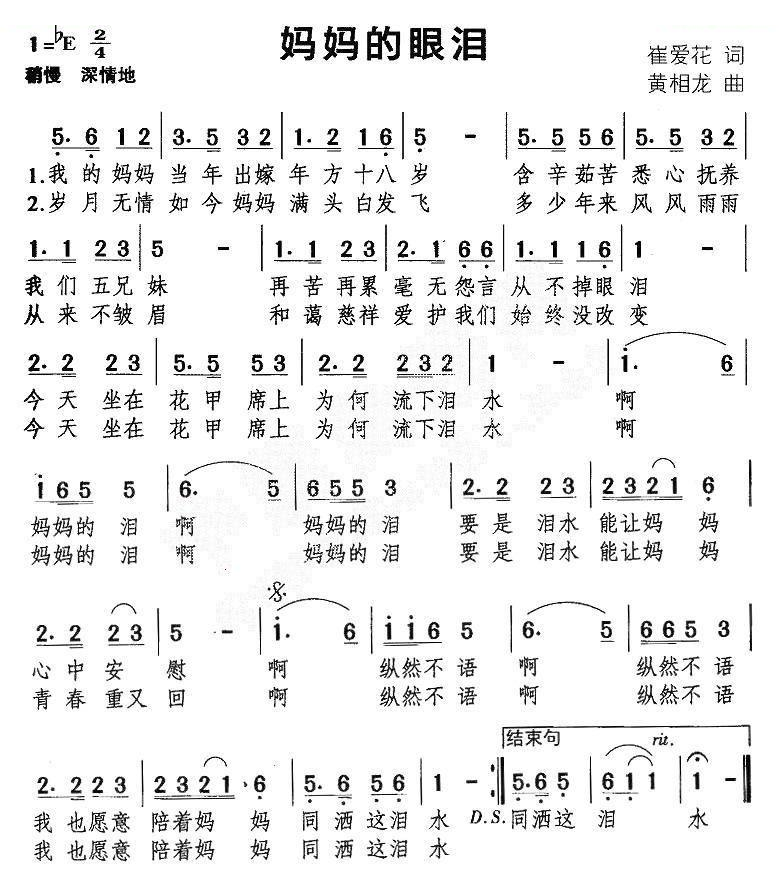 妈妈的眼泪
1=♭E 2/4
稍慢 深情地
崔爱花 词
黄相龙 曲
5. 6 1 2 | 3. 5 3 2 | 1. 2 1 6 | 5 - | 5. 5 5 6 | 5. 5 3 2 |
1.我的妈妈 当年出嫁 年方十八 岁 含辛茹苦 悉心抚养
2.岁月无情 如今妈妈 满头白发 飞 多少年来 风风雨雨
1. 1 2 3 | 5 - | 1. 1 2 3 | 2. 1 6 6 | 1. 1 1 6 | 1 - |
我们五兄 妹 再苦再累 毫无怨言 从不掉眼 泪
从来不皱 眉 和蔼慈祥 爱护我们 始终没改 变
2. 2 2 3 | 5. 5 5 3 | 2. 2 2 3 2 | 1 - | 1. 6 |
今天坐在 花甲席上 为何流下泪 水 啊
今天坐在 花甲席上 为何流下泪 水 啊
1 6 5 5 | 6. 5 | 6 5 5 3 | 2. 2 2 3 | 2 3 2 1 6 |
妈妈的泪 啊 妈妈的泪 要是泪水 能让妈妈
妈妈的泪 啊 妈妈的泪 要是泪水 能让妈妈
2. 2 2 3 | 5 - | 1. 6 | 1 1 6 5 | 6. 5 | 6 6 5 3 |
心中安 慰 啊 纵然不语 啊 纵然不语
青春重又 回 啊 纵然不语 啊 纵然不语
结束句 rit.
2. 2 2 3 | 2 3 2 1 6 | 5. 6 5 6 | 1 - :| 5. 6 5 | 6 1 1 | 1 - |
我也愿意 陪着妈妈 同洒这泪 水 D.S. 同洒这 泪 水
我也愿意 陪着妈妈 同洒这泪 水